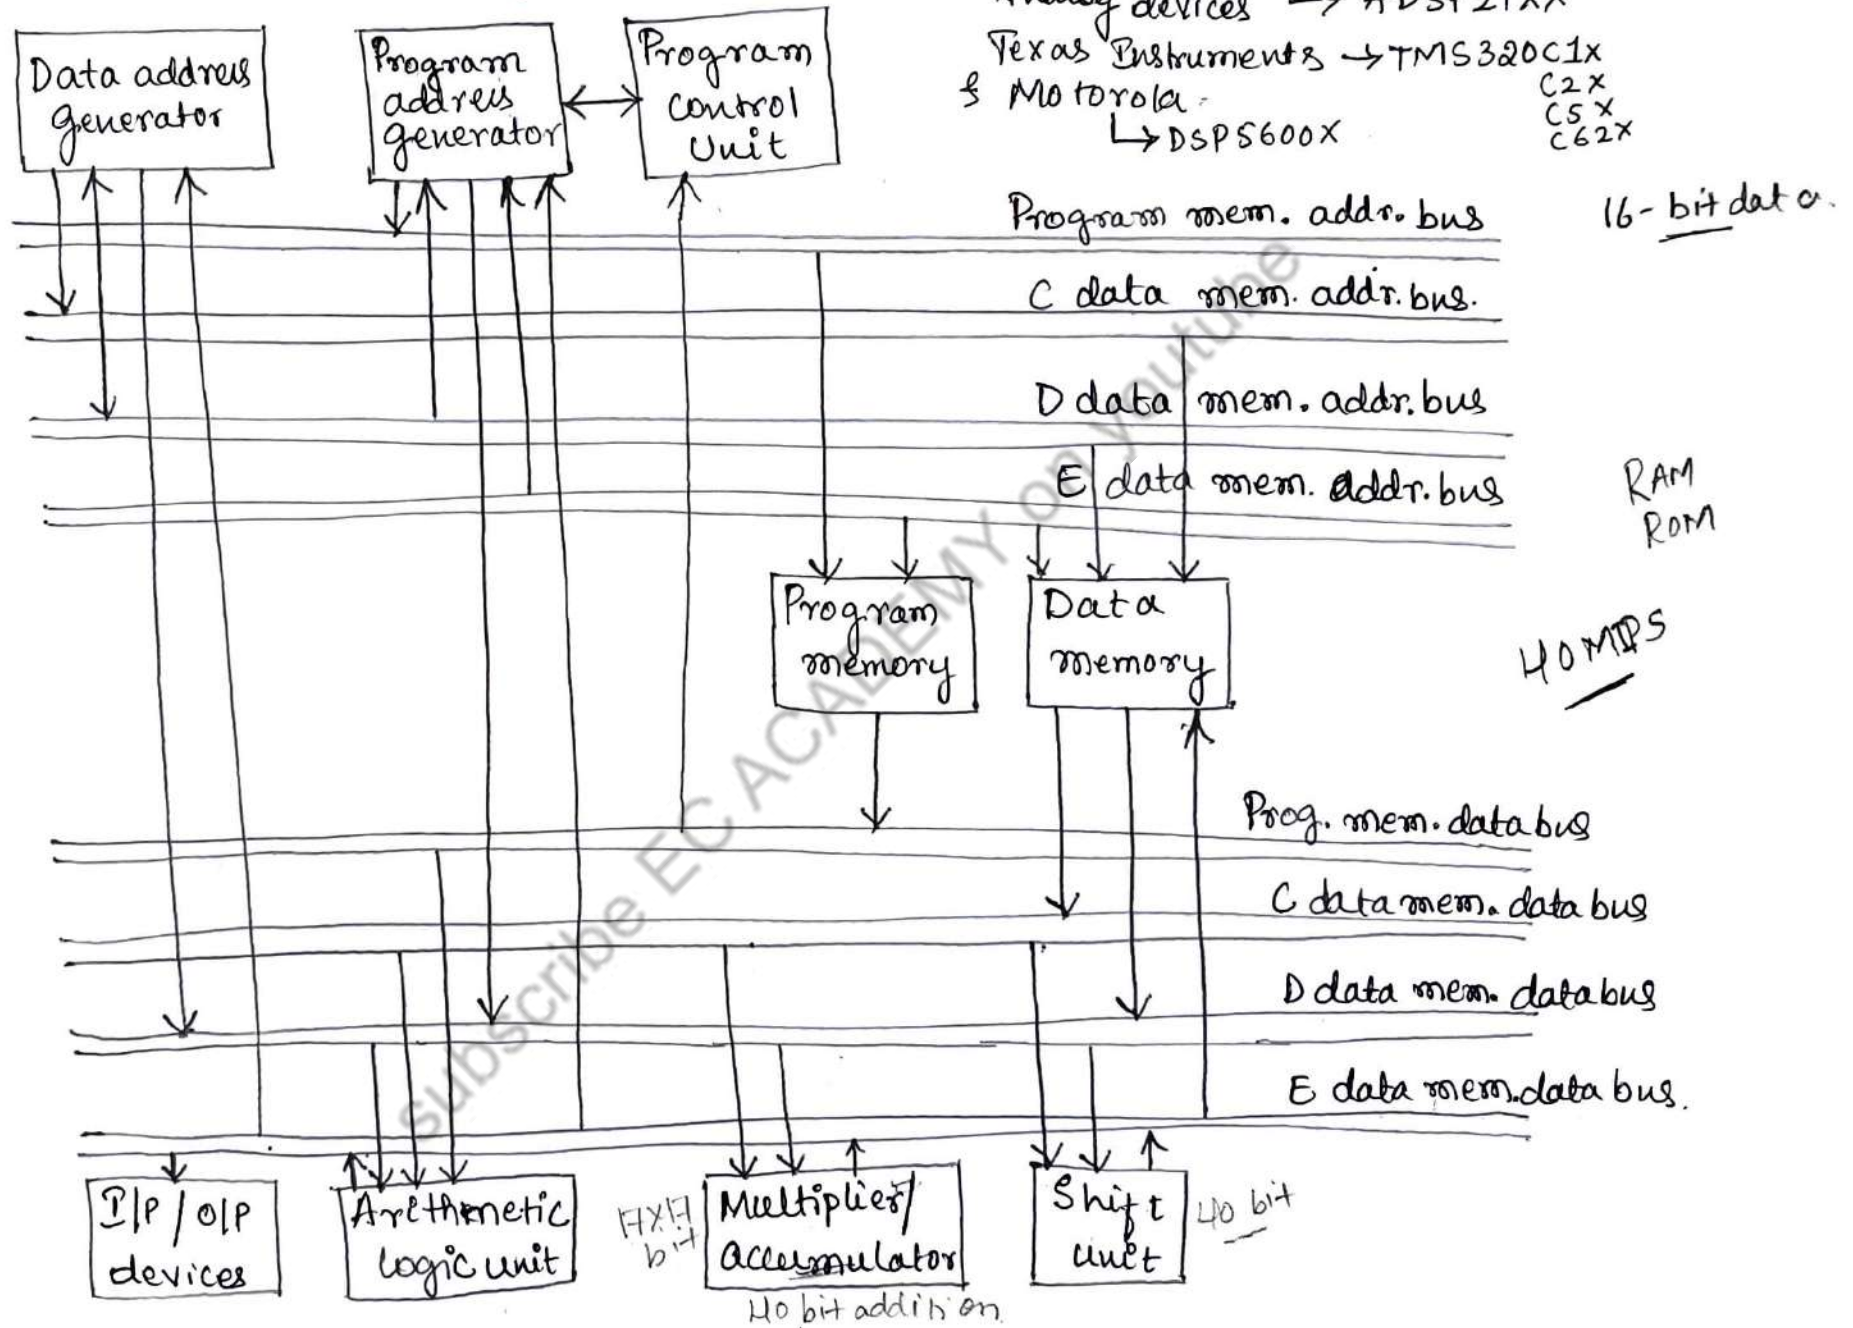 Data address
generator
Program
address
generator
Program
control
Unit
Analog devices → ADSP21XX
Texas Instruments → TMS320C1X
C2X
C5X
C62X
& Motorola.
↳ DSP5600X
16-bit data.
Program mem. addr. bus
C data mem. addr. bus.
D data mem. addr. bus
E data mem. addr. bus
RAM
ROM
Program
memory
Data
memory
40 MIPS
Prog. mem. data bus
C data mem. data bus
D data mem. data bus
E data mem. data bus.
I/P / O/P
devices
Arithmetic
logic unit
17X17
bit
Multiplier/
accumulator
40 bit addition
Shift
unit
40 bit
subscribe EC ACADEMY on youtube